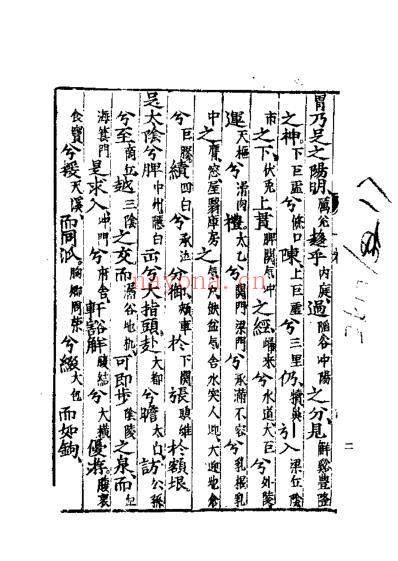 胃乃足之陽明厲兌趨乎內庭過陷谷冲陽之分見解谿豐隆
之神下巨虛兮條口陳上巨虛兮三里仍犢鼻引入梁丘陰
市之下伏兔上貫髀關气中之經歸來兮水道大巨兮外陵
運天樞兮滑肉禮太乙兮關門梁門兮承滿不容兮乳根乳
中之膺窓屋翳庫房之气戶缺盆气舍水突人迎大迎地倉
兮巨髎續四白兮承泣分御頰車於下關張頭維於額垠
足太陰兮脾中州隱白出兮大指頭赴大都兮瞻太白訪公孫
兮至商丘越三陰之交而漏谷地机可即步陰陵之泉而血
海箕門是求入冲門兮府舍軒豁解腹結兮大横優游腹哀
食竇兮緩天溪而同派胸鄉周榮兮綴大包而如鉤
二
nayona.cn